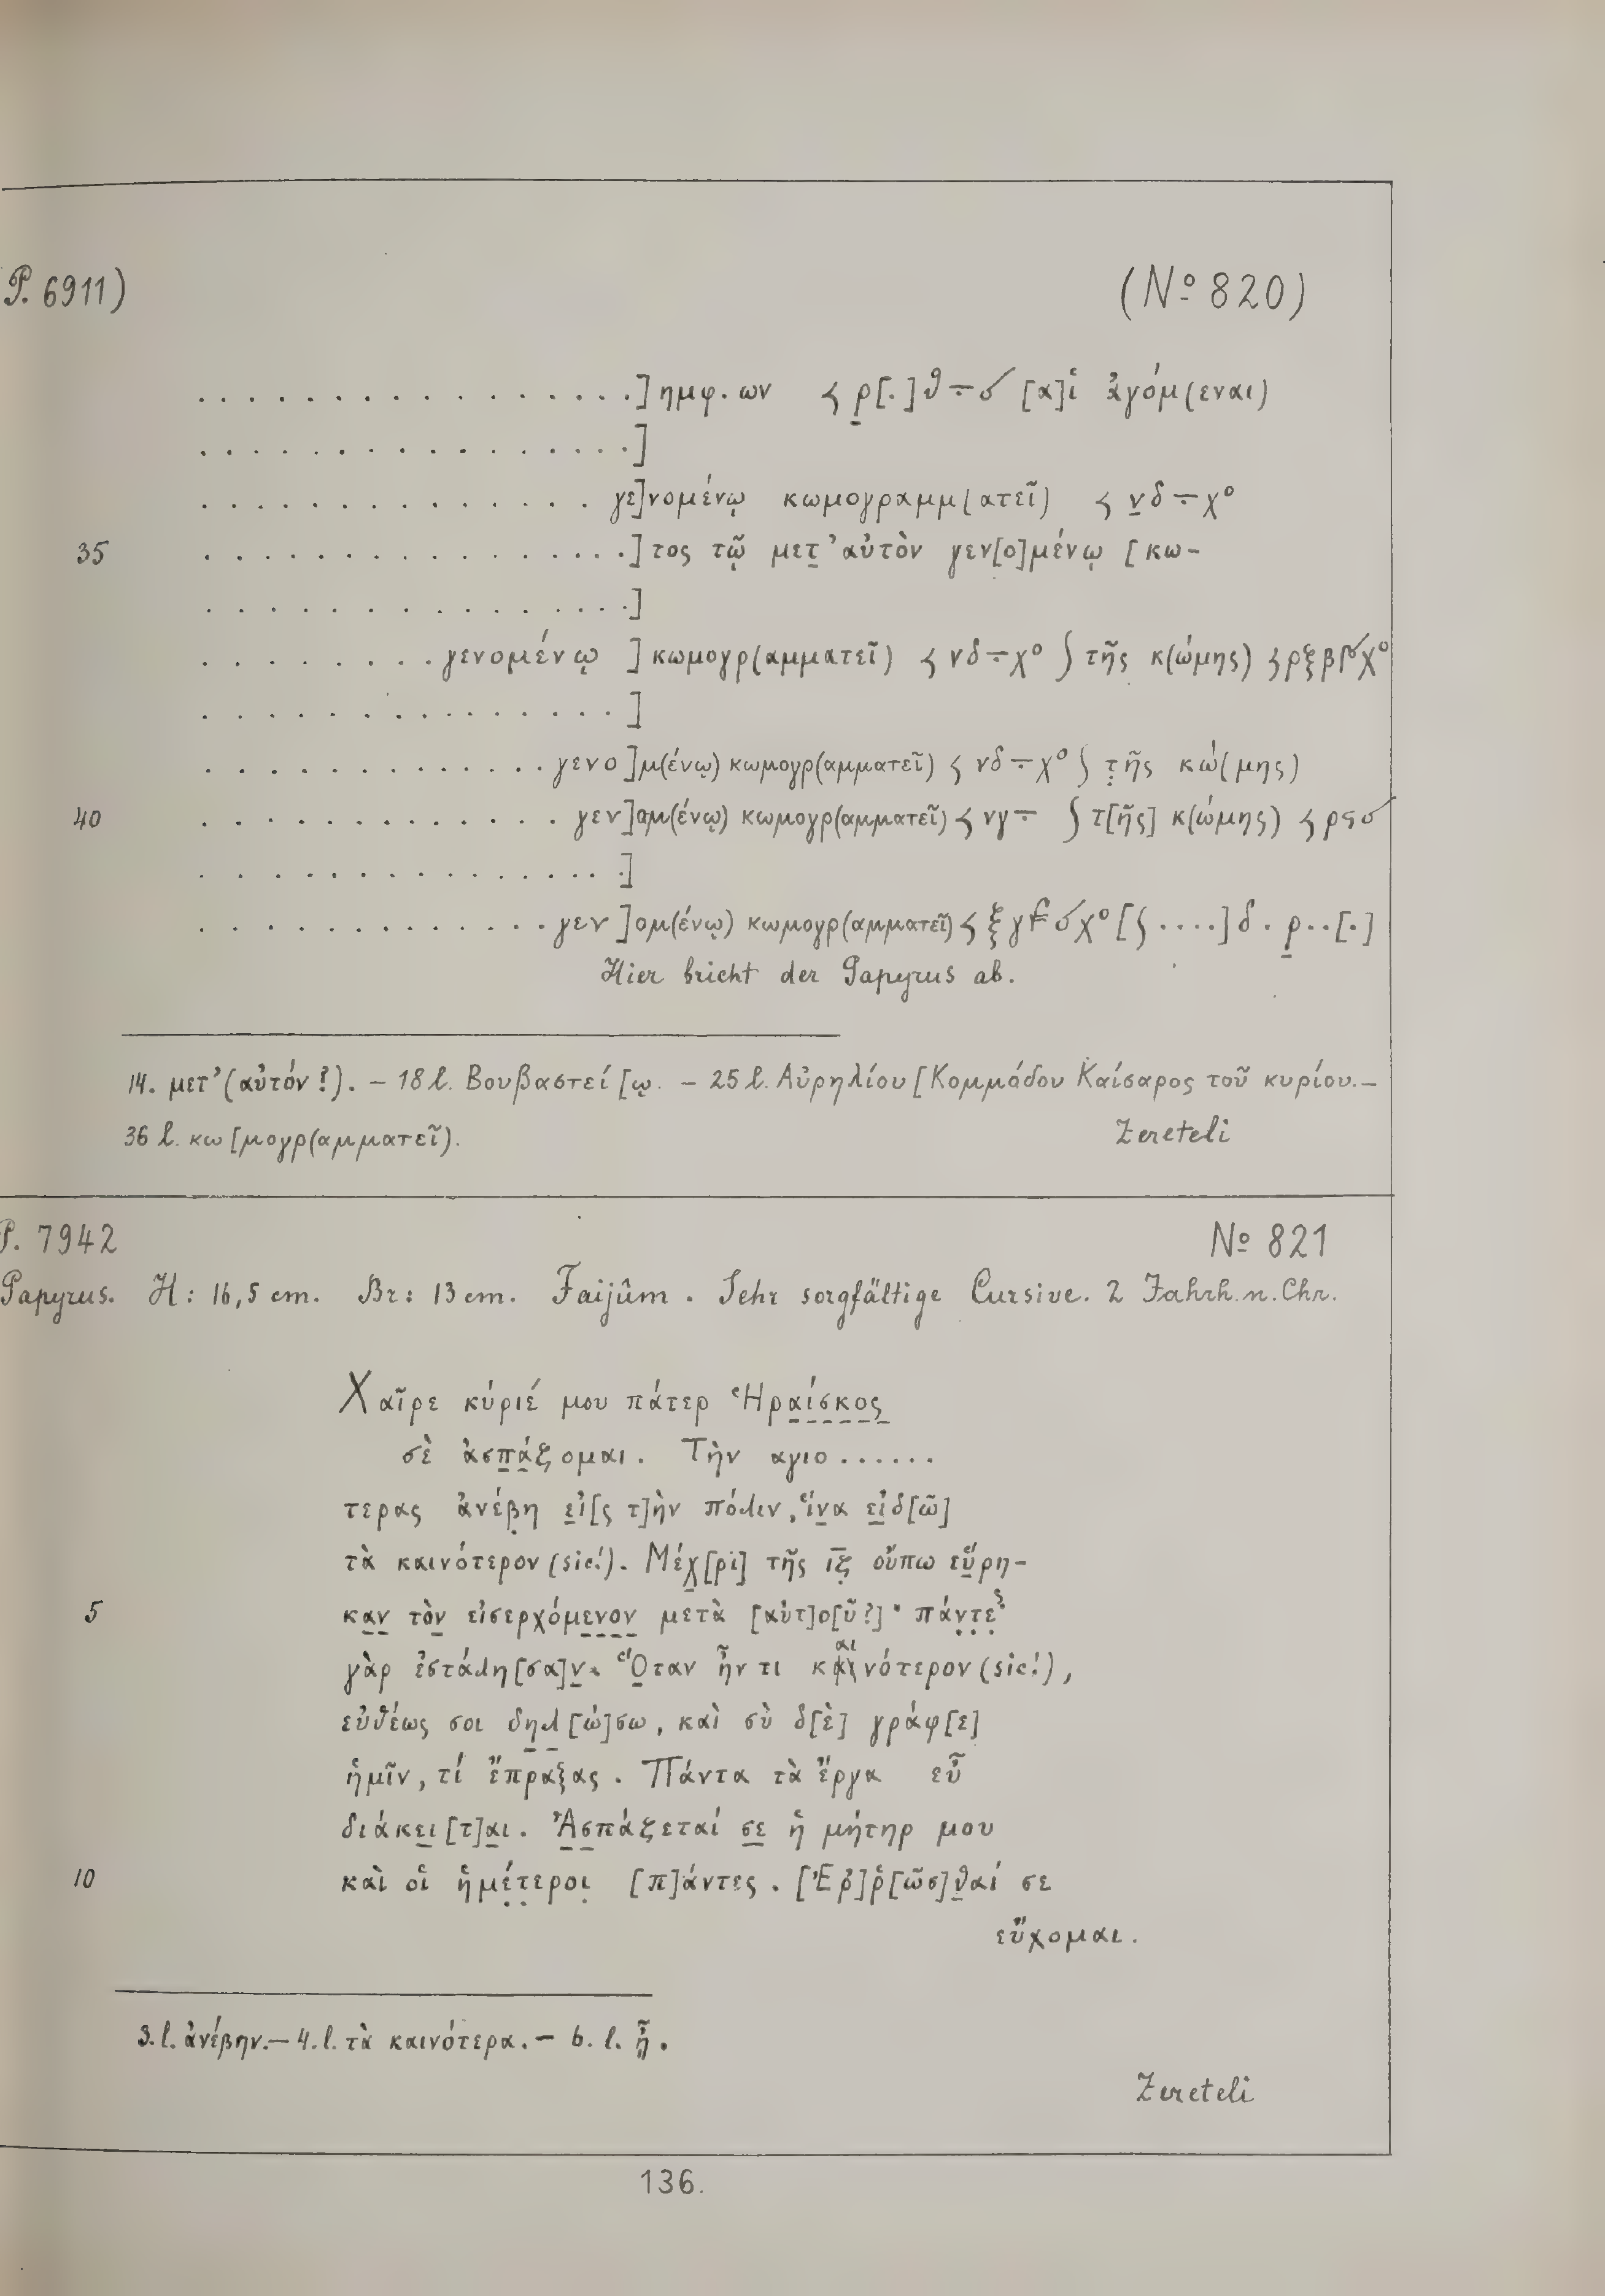 P. 6911) (No 820)
. . . . . . . . . . . . . . . .] ημφ. ων < ρ[.]θ [α]ἱ ἀγόμ(εναι)
. . . . . . . . . . . . . . . .]
. . . . . . . . . . . . . γε]νομένῳ κωμογραμμ(ατεῖ) < νδ χο
35 . . . . . . . . . . . . . . .] τος τῷ μετ’ αὐτὸν γεν[ο]μένῳ [κω-
. . . . . . . . . . . . . . .]
. . . . . . . . γενομένῳ ] κωμογρ(αμματεῖ) < νδ χο ʃ τῆς κ(ώμης) < ρξβ χο
. . . . . . . . . . . . . . .]
. . . . . . . . . . . . γενο]μ(ένῳ) κωμογρ(αμματεῖ) < νδ χο ʃ τῆς κώ(μης)
40 . . . . . . . . . . . . γεν]ομ(ένῳ) κωμογρ(αμματεῖ) < νγ ʃ τ[ῆς] κ(ώμης) < ρϛ
. . . . . . . . . . . . . . .]
. . . . . . . . . . . . γεν]ομ(ένῳ) κωμογρ(αμματεῖ) < ξγ χο [ʃ ....] δ . ρ..[.]
Hier bricht der Papyrus ab.
14. μετ’(αὐτόν?). – 18 l. Βουβαστεί[ῳ. – 25 l. Αὐρηλίου [Κομμόδου Καίσαρος τοῦ κυρίου. –
36 l. κω[μογρ(αμματεῖ). Zereteli
P. 7942 No 821
Papyrus. H: 16,5 cm. Br: 13 cm. Faijûm. Sehr sorgfältige Cursive. 2 Jahrh. n. Chr.
Χαῖρε κύριέ μου πάτερ Ἡραίσκος
σὲ ἀσπάζομαι. Τὴν αγιο ......
τερας ἀνέβη εἰ[ς τ]ὴν πόλιν, ἵνα εἰδ[ῶ]
τὰ καινότερον (sic!). Μέχ[ρι] τῆς ιζ οὔπω εὕρη-
5 καν τὸν εἰσερχόμενον μετὰ [αὐτ]ο[ῦ?]· πάντες
γὰρ ἐστάλη[σα]ν. Ὅταν ἦν τι καινότερον (sic!),
εὐθέως σοι δηλ[ώ]σω, καὶ σὺ δ[ὲ] γράφ[ε]
ἡμῖν, τί ἔπραξας. Πάντα τὰ ἔργα εὖ
διάκει[τ]αι. Ἀσπάζεταί σε ἡ μήτηρ μου
10 καὶ οἱ ἡμέτεροι [π]άντες. [Ἐρ]ῥ[ῶσ]θαί σε
εὔχομαι.
3. l. ἀνέβην. – 4. l. τὰ καινότερα. – 6. l. ᾖ.
Zereteli
136.